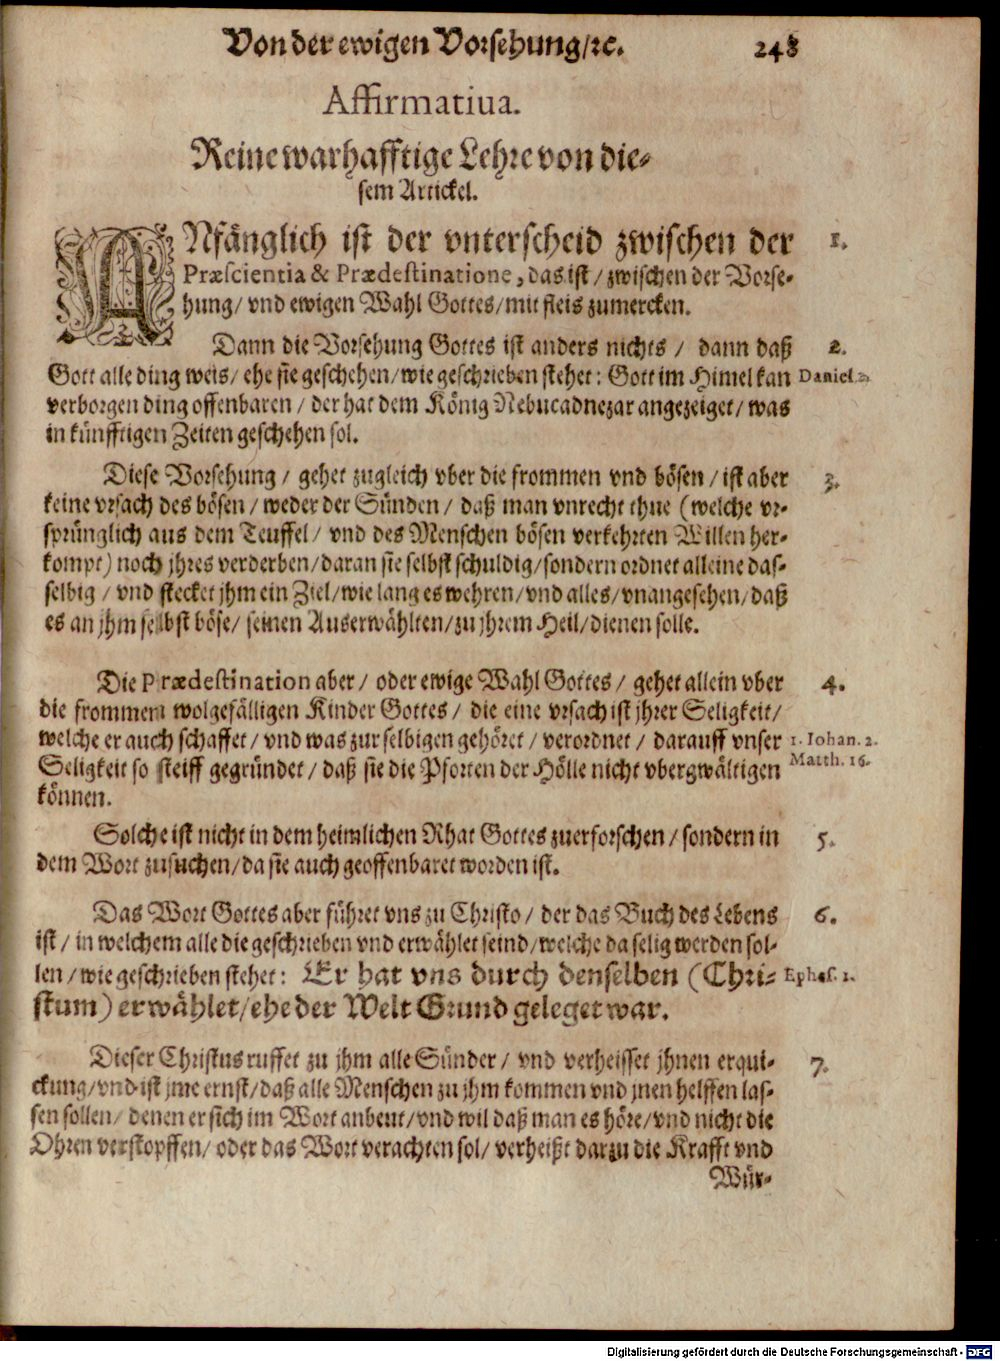 Von der ewigen Vorsehung/ꝛc. 248
Affirmatiua.
Reine warhafftige Lehre von die-
sem Artickel.
ANfänglich ist der vnterscheid zwischen der 1.
Præscientia & Prædestinatione, das ist / zwischen der Vorse-
hung/ vnd ewigen Wahl Gottes/ mit fleis zumercken.
Dann die Vorsehung Gottes ist anders nichts / dann daß 2.
Gott alle ding weis/ ehe sie geschehen/ wie geschrieben stehet: Gott im Himel kan Daniel. 2.
verborgen ding offenbaren / der hat dem König Nebucadnezar angezeiget/ was
in künfftigen Zeiten geschehen sol.
Diese Vorsehung / gehet zugleich vber die frommen vnd bösen / ist aber 3.
keine vrsach des bösen / weder der Sünden / daß man vnrecht thue (welche vr-
sprünglich aus dem Teuffel/ vnd des Menschen bösen verkehrten Willen her-
kompt) noch jhres verderben/ daran sie selbst schuldig/ sondern ordnet alleine das-
selbig / vnd stecket jhm ein Ziel/ wie lang es wehren/ vnd alles/ vnangesehen/ daß
es an jhm selbst böse/ seinen Auserwählten/ zu jhrem Heil/ dienen solle.
Die Prædestination aber / oder ewige Wahl Gottes / gehet allein vber 4.
die frommen wolgefälligen Kinder Gottes / die eine vrsach ist jhrer Seligkeit/
welche er auch schaffet / vnd was zur selbigen gehöret / verordnet / darauff vnser 1. Iohan. 2.
Seligkeit so steiff gegründet / daß sie die Pforten der Hölle nicht vbergwältigen Matth. 16.
können.
Solche ist nicht in dem heimlichen Rhat Gottes zuerforschen / sondern in 5.
dem Wort zusuchen/ da sie auch geoffenbaret worden ist.
Das Wort Gottes aber führet vns zu Christo / der das Buch des Lebens 6.
ist / in welchem alle die geschrieben vnd erwählet seind/ welche da selig werden sol-
len / wie geschrieben stehet: Er hat vns durch denselben (Chri- Ephes. 1.
stum) erwählet/ ehe der Welt Grund geleget war.
Dieser Christus ruffet zu jhm alle Sünder / vnd verheisset jhnen erqui- 7.
ckung/ vnd ist jme ernst/ daß alle Menschen zu jhm kommen vnd jnen helffen las-
sen sollen/ denen er sich im Wort anbeut/ vnd wil daß man es höre/ vnd nicht die
Ohren verstopffen/ oder das Wort verachten sol/ verheißt darzu die Krafft vnd
Wür-
Digitalisierung gefördert durch die Deutsche Forschungsgemeinschaft - DFG